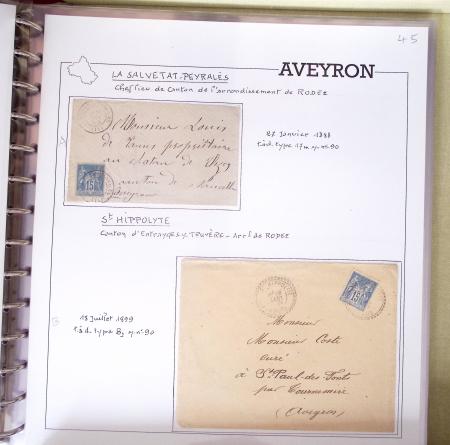 45
AVEYRON
LA SALVETAT-PEYRALÈS
Chef lieu de Canton de l'arrondissement de RODEZ
A
Monsieur Louis
de propriétaire
au de
canton de
Aveyron
15
27 Janvier 1888
t.à.d. type 17 n°90
St HIPPOLYTE
Canton d'Entraygues s. TRUYÈRE - Arrt de RODEZ
B
18 Juillet 1899
t.à.d. type n°90
15
Monsieur
Monsieur Coste
curé
à St-Paul-des-Fonts
par Tournemire
(Aveyron)